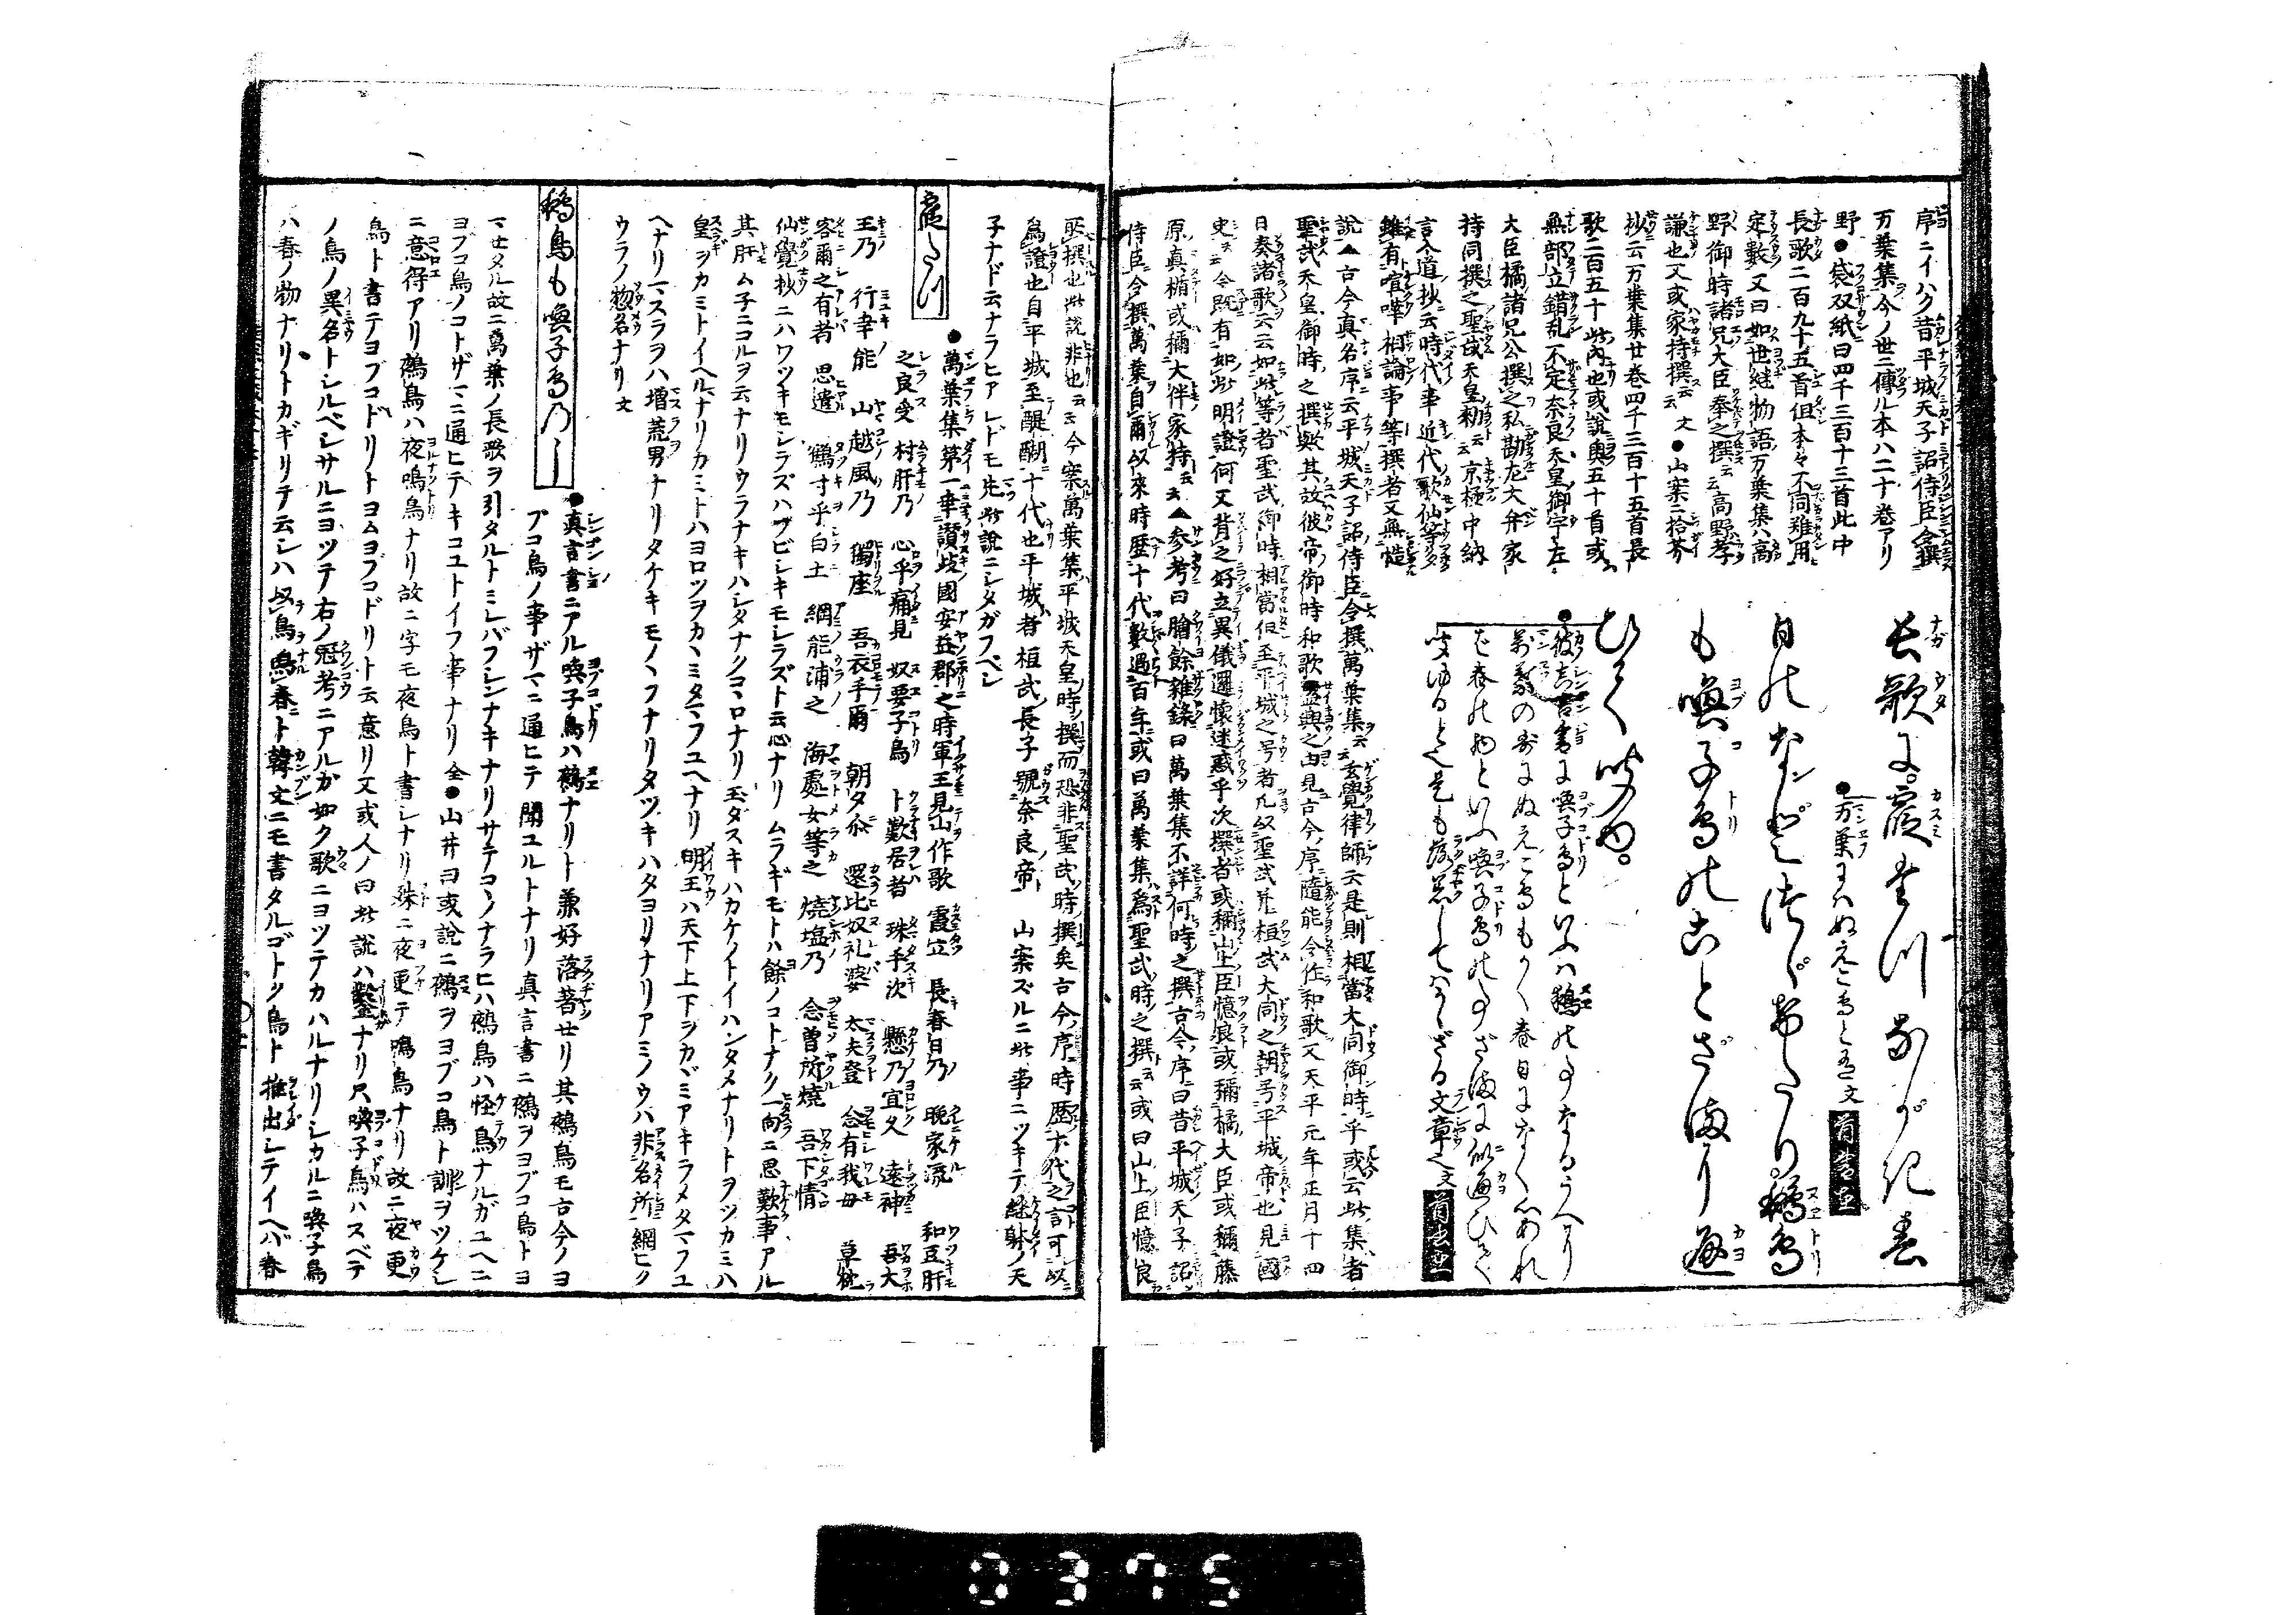 序ニイハク昔平城天子詔侍臣令撰
万葉集今ノ世ニ傳ル本ハ二十巻アリ
野●袋双紙曰四千三百十三首此中
長歌二百九十五首但本々不同難用
定數又曰如世継物語万葉集ハ高
野御時諸兄大臣奉之撰云云高野孝
謙也又或家持撰云云文●山案ニ拾芥
抄云万葉集廿巻四千三百十五首長
歌二百五十此内也或說奥五十首或
無部立錯乱不定奈良天皇御宇左
大臣橘諸兄公撰之私勘左大弁家
持同撰之聖武天皇勅云京極中納
言令道抄云時代事近代歌仙等多
雖有喧嘩相論事等撰者又無慥
說▲古今真名序云平城天子詔侍臣令撰萬葉集云云玄覺律師云是則相當大同御時乎或云此集者
聖武天皇御時之撰歟其故彼帝御時和歌盛興之由見古今序隨能令作和歌又天平元年正月十四
日奏諸歌云云如此等者聖武御時相當但至平城之号者凡以聖武并桓武大同之朝号平城帝也見國
史云云今既有如此明證何又背之好立異儀還懷迷惑乎次撰者或稱山上臣憶良或稱橘大臣或稱藤
原真楯或稱大伴家持云云▲参考曰膾餘雜錄曰萬葉集不詳何時之撰古今序ニ曰昔平城天子詔
侍臣令撰萬葉自爾以來時歴十代數過百年或曰萬葉集為聖武時之撰云云或曰山上臣憶良
長歌に。霞たつながき春
●万葉にハぬえこ鳥と有文
日のなンどつゞけたり。鵺鳥
も喚子鳥のことざまに通
ひて聞ゆ。
●彼真言書に喚子鳥といふハ鵺の事なるうへに
萬葉の哥にぬえこ鳥もかく春日になくとあれ
ば春の物といふ喚子鳥のことざまに似通ひて
所撰也此說非也云云今案萬葉集平城天皇時撰而恐非聖武時撰矣古今序時歴十代之言可以
為證也自平城至醍醐十代也平城者桓武長子號奈良帝 山案ズルニ此事ニツキテ継躰ノ天
子ナド云ナラヒアレドモ先此說ニシタガフベシ
霞たつ
●萬葉集第一幸讃岐國安益郡之時軍王見山作歌 霞立 長春日乃 晩家流 和豆肝
之良受 村肝乃 心乎痛見 奴要子鳥 卜歎居者 珠手次 懸乃宜久 遠神 吾大
王乃 行幸能 山越風乃 獨座 吾衣手爾 朝夕尒 還比奴礼婆 大夫登 念有我母 草枕
客爾之有者 思遣 鶴寸乎白土 網能浦之 海處女等之 燒塩乃 念曽所燒 吾下情
仙覺抄ニハワツキモシラズハブビシキモシラズト云心ナリ ムラギモトハ餘ノコトナク一向ニ思歎事アル
其肝ム子ニコルヲ云ナリウラナキハシタナクコヽロナリ玉ダスキハカケノトイハンタメナリトヲツカミハ
皇ヲカミトイヘルナリカミトハヨロツヲカヽミタマフユヘナリ明王ハ天下上下ヲカヾミアキラメタマフユ
ヘナリマスラヲハ増荒男ナリタケキモノヽフナリタツキハタヨリナリアミノウハ非名所網ヒク
ウラノ惣名ナリ文
鵺鳥も喚子鳥の〱
●真言書ニアル喚子鳥ハ鵺ナリト兼好落著セリ其鵺鳥モ古今ノヨ
ブコ鳥ノ事ザマニ通ヒテ聞ユルトナリ真言書ニ鵺ヲヨブコ鳥トヨ
マセタル故ニ萬葉ノ長歌ヲ引タルトミレバフシンナキナリサテコヽノナラヒハ鵺鳥ハ怪鳥ナルガユヘニ
ヨブコ鳥ノコトザマニ通ヒテキコユトイフ事ナリ全●山井ヨ或說ニ鵺ヲヨブコ鳥ト訓ヲツケシ
ニ意得アリ鵺鳥ハ夜鳴鳥ナリ故ニ字モ夜鳥ト書シナリ殊ニ夜更テ鳴鳥ナリ故ニ夜更
鳥ト書テヨブコドリトヨムヨブコドリト云意リ又或人ノ曰此說ハ鑿ナリ只喚子鳥ハスベテ
ノ鳥ノ異名トシルベシサルニヨツテ右ノ冠考ニアルガ如ク歌ニヨツテカハルナリシカルニ喚子鳥
ハ春ノ物ナリトカギリテ云シハ以鳥鳴春ト韓文ニモ書タルゴトク鳥ト推出シテイヘバ春
0375